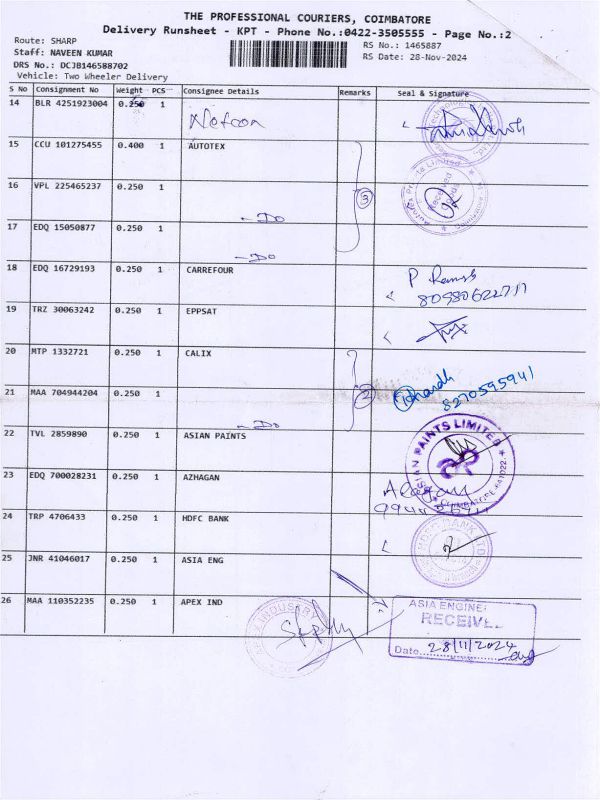 THE PROFESSIONAL COURIERS, COIMBATORE
Delivery Runsheet - KPT - Phone No.:0422-3505555 - Page No.:2
Route: SHARP
RS No.: 1465887
Staff: NAVEEN KUMAR
RS Date: 28-Nov-2024
DRS No.: DCJB146588702
Vehicle: Two Wheeler Delivery
S No Consignment No Weight PCS Consignee Details Remarks Seal & Signature
14 BLR 4251923004 0.250 1
15 CCU 101275455 0.400 1 AUTOTEX
16 VPL 225465237 0.250 1
3
- Do
17 EDQ 15050877 0.250 1
- Do
18 EDQ 16729193 0.250 1 CARREFOUR
P Ramesh
19 TRZ 30063242 0.250 1 EPPSAT
20 MTP 1332721 0.250 1 CALIX
21 MAA 704944204 0.250 1
2
8270595941
- Do
22 TVL 2859890 0.250 1 ASIAN PAINTS
ASIAN PAINTS LIMITED
COIMBATORE-641022
23 EDQ 700028231 0.250 1 AZHAGAN
24 TRP 4706433 0.250 1 HDFC BANK
HDFC BANK LTD
25 JNR 41046017 0.250 1 ASIA ENG
26 MAA 110352235 0.250 1 APEX IND
ASIA ENGINE
RECEIVE
Date 28/11/2024